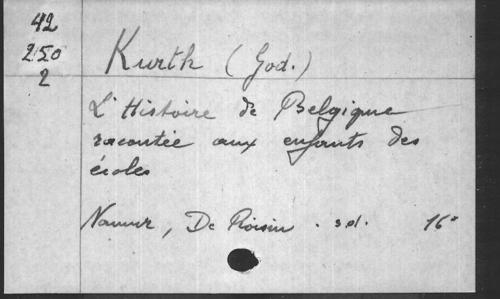 42
250
2
Kurth (God.)
L'Histoire de Belgique
racontée aux enfants des
écoles
Namur, De Roisin. sd. 16°